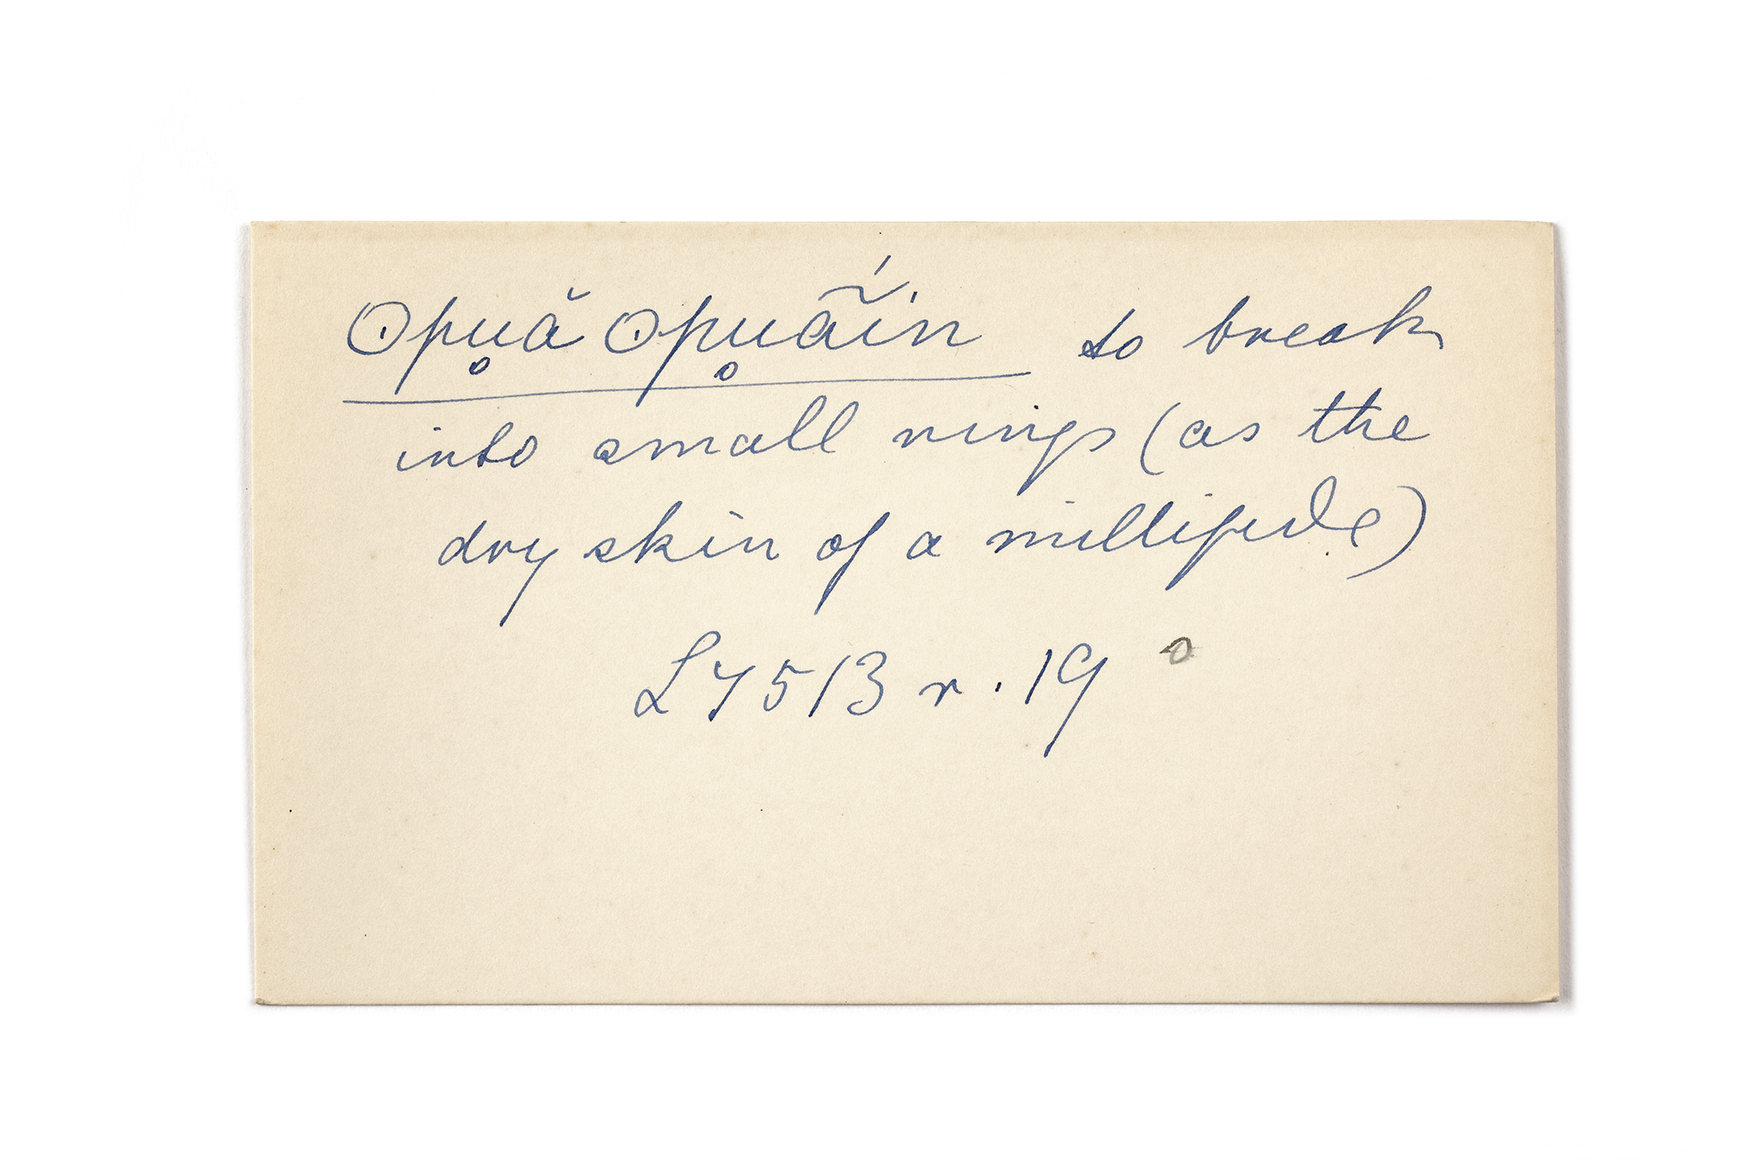 ʘpu̥ă ʘpu̥ã́in to break
into small rings (as the
dry skin of a millipede)
L7513 r. 19